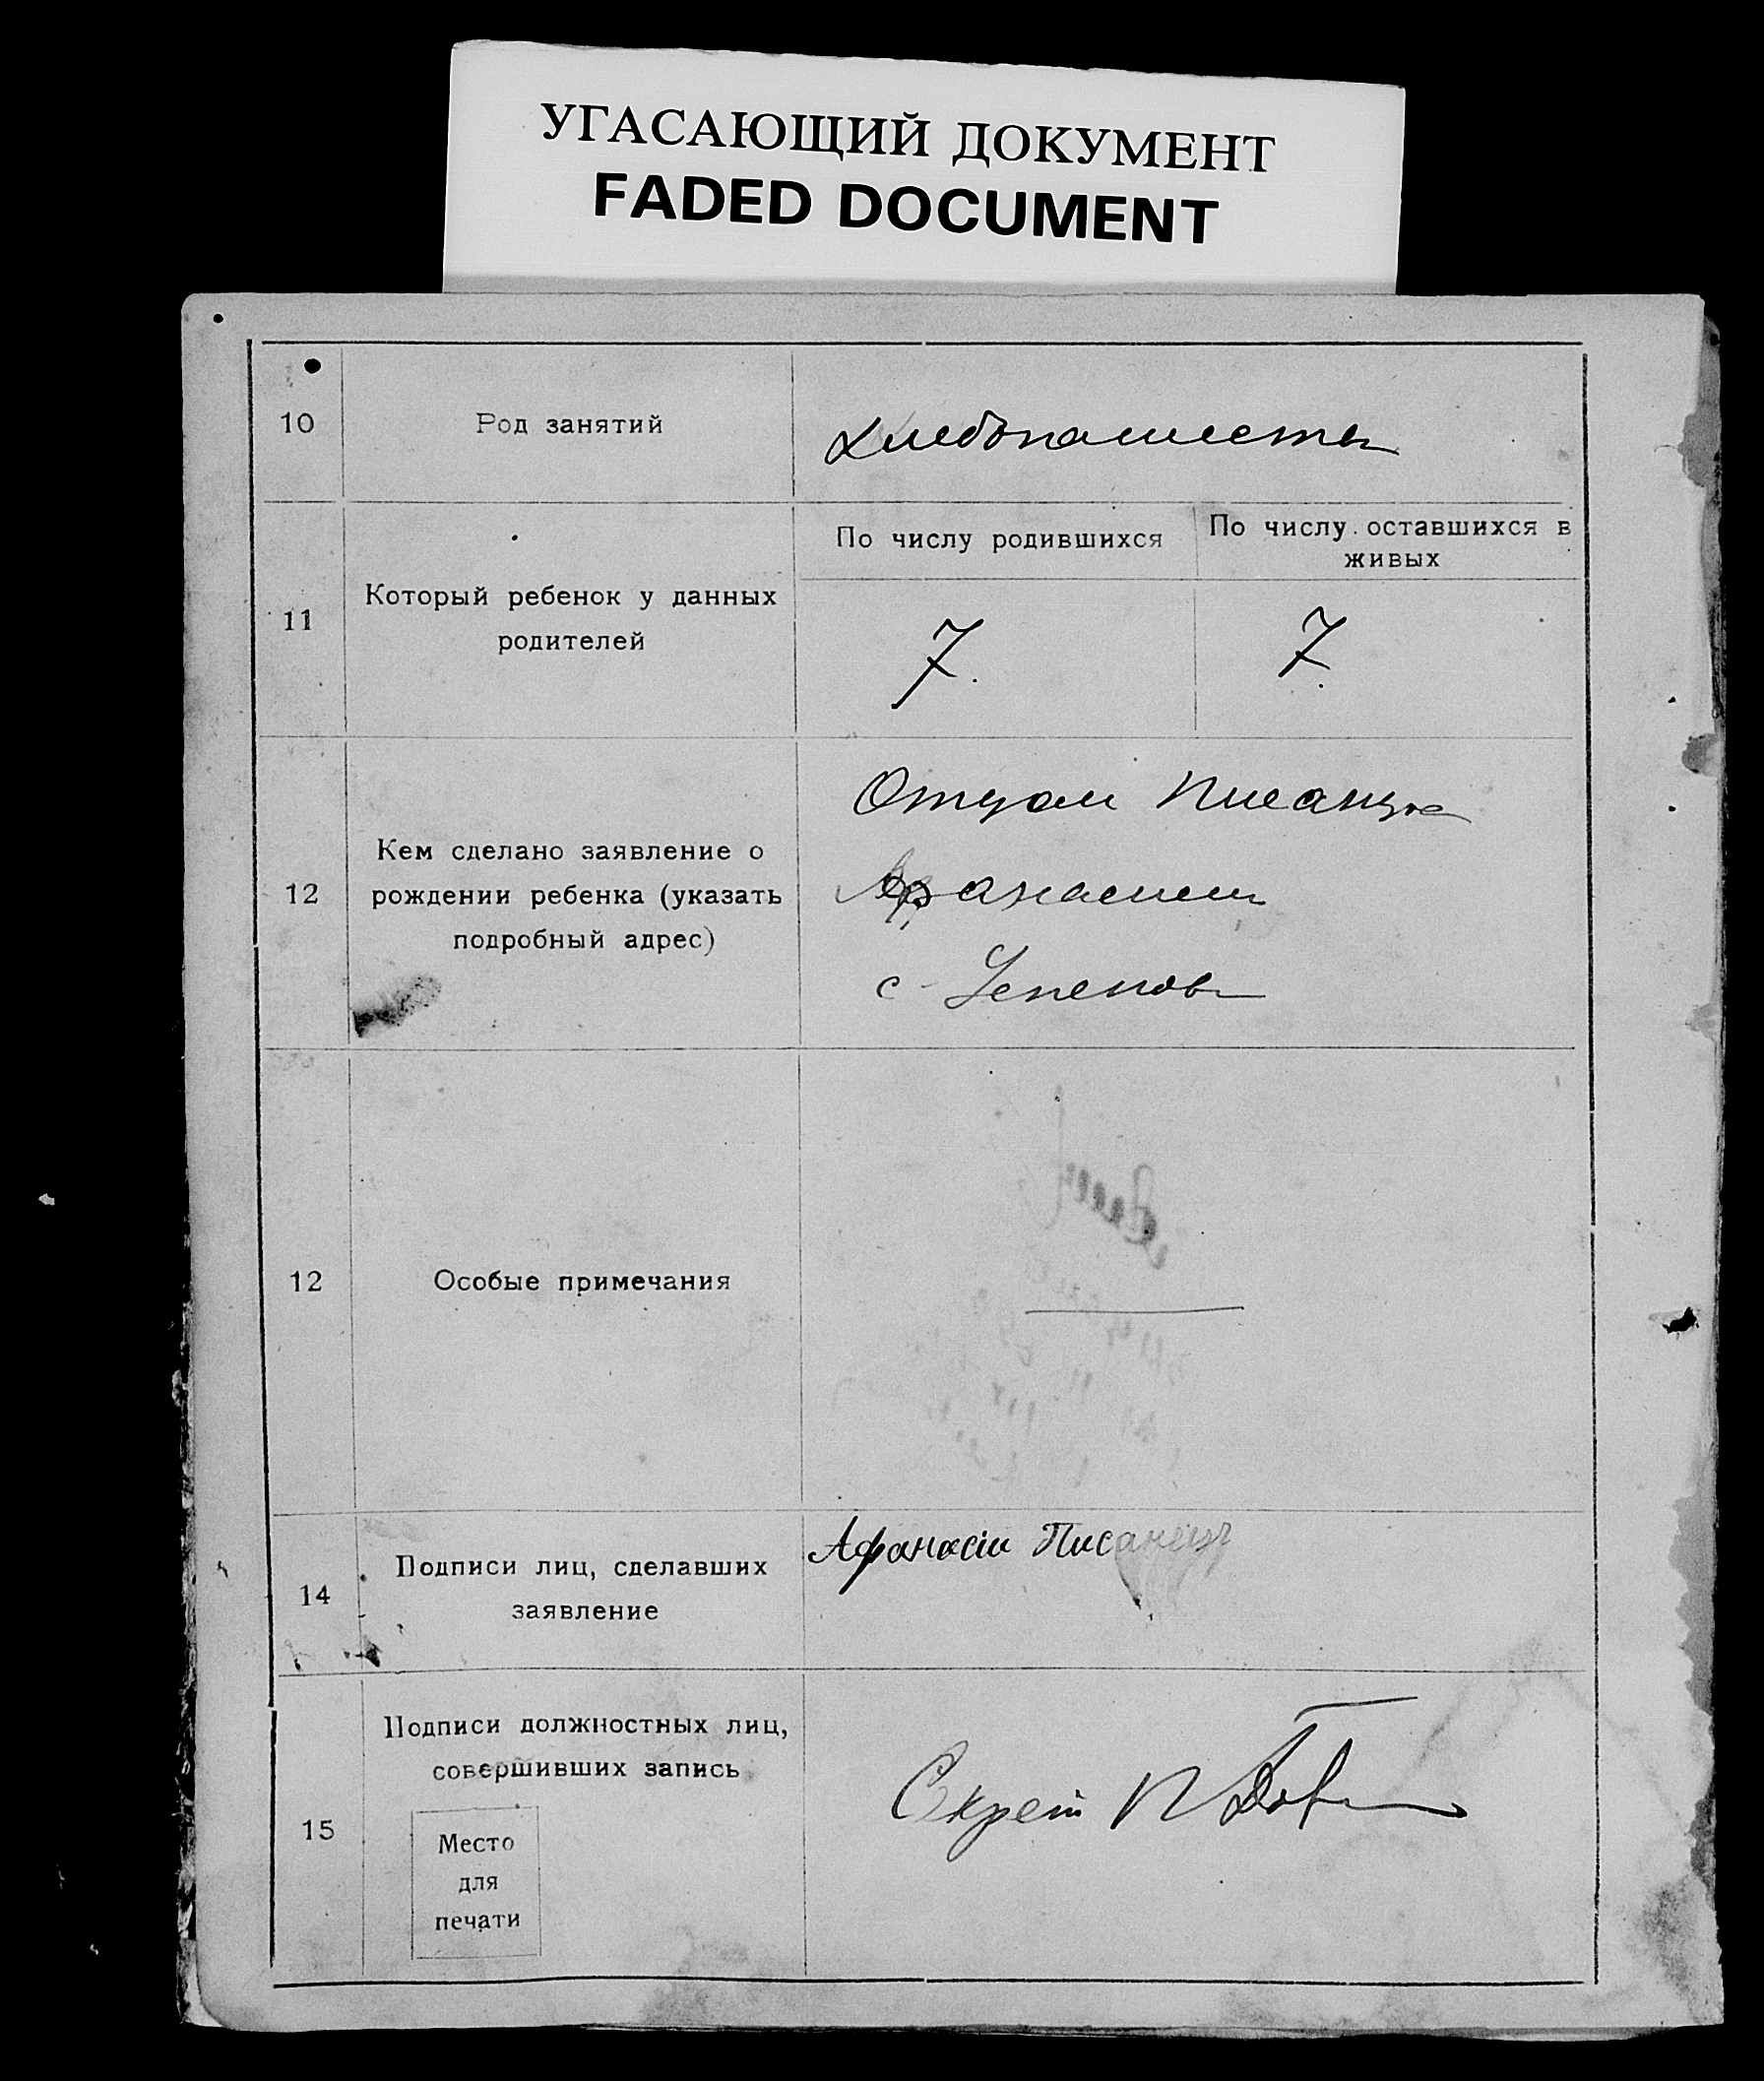 УГАСАЮЩИЙ ДОКУМЕНТ
FADED DOCUMENT
10
Род занятий
11
Который ребенок у данных
родителей
По числу родившихся
По числу оставшихся в
живых
7.
7.
12
Кем сделано заявление о
рождении ребенка (указать
подробный адрес)
Отцом
Афанасием
с
12
Особые примечания
14
Подписи лиц, сделавших
заявление
Афанасiй Писанец
15
Подписи должностных лиц,
совершивших запись
Место
для
печати
Секрет